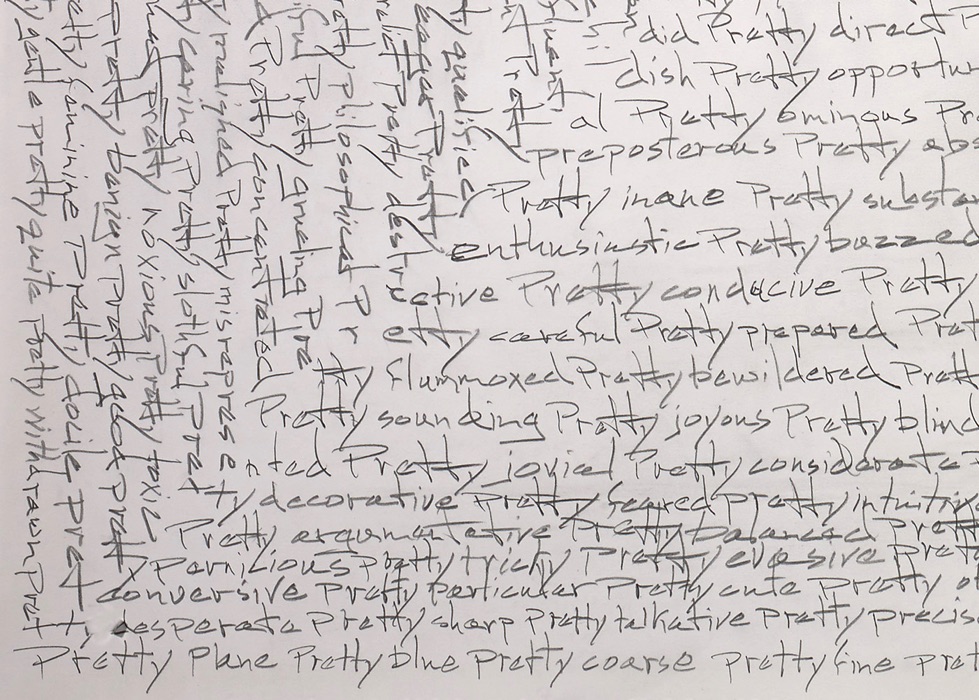 did Pretty direct
dish Pretty opportun
al Pretty ominous Pr
preposterous Pretty abs
Pretty inane Pretty substa
enthusiastic Pretty buzzed
ctive Pretty conducive Pretty
etty careful Pretty prepared Pret
tty flummoxed Pretty bewildered Prett
Pretty sounding Pretty joyous Pretty blind
nted Pretty jovial Pretty considerate
ty decorative Pretty feared Pretty intuitiv
Pretty argumentative Pretty balanced Prett
y Pernicious Pretty tricky Pretty evasive Prett
conversive Pretty particular Pretty cute Pretty
y desperate Pretty sharp Pretty talkative Pretty precis
Pretty plane Pretty blue Pretty coarse Pretty fine pret
gent Pretty quite Pretty withdrawn Pret
etty feminine Pretty docile Pret
Pretty benign Pretty good Prett
Pretty noxious Pretty toxic
caring Pretty slothful Pret
maligned Pretty misreprese
Pretty concentrated
Pretty grueling Pre
etty philosophical Pr
Pretty destru
Pretty
qualified
Prett